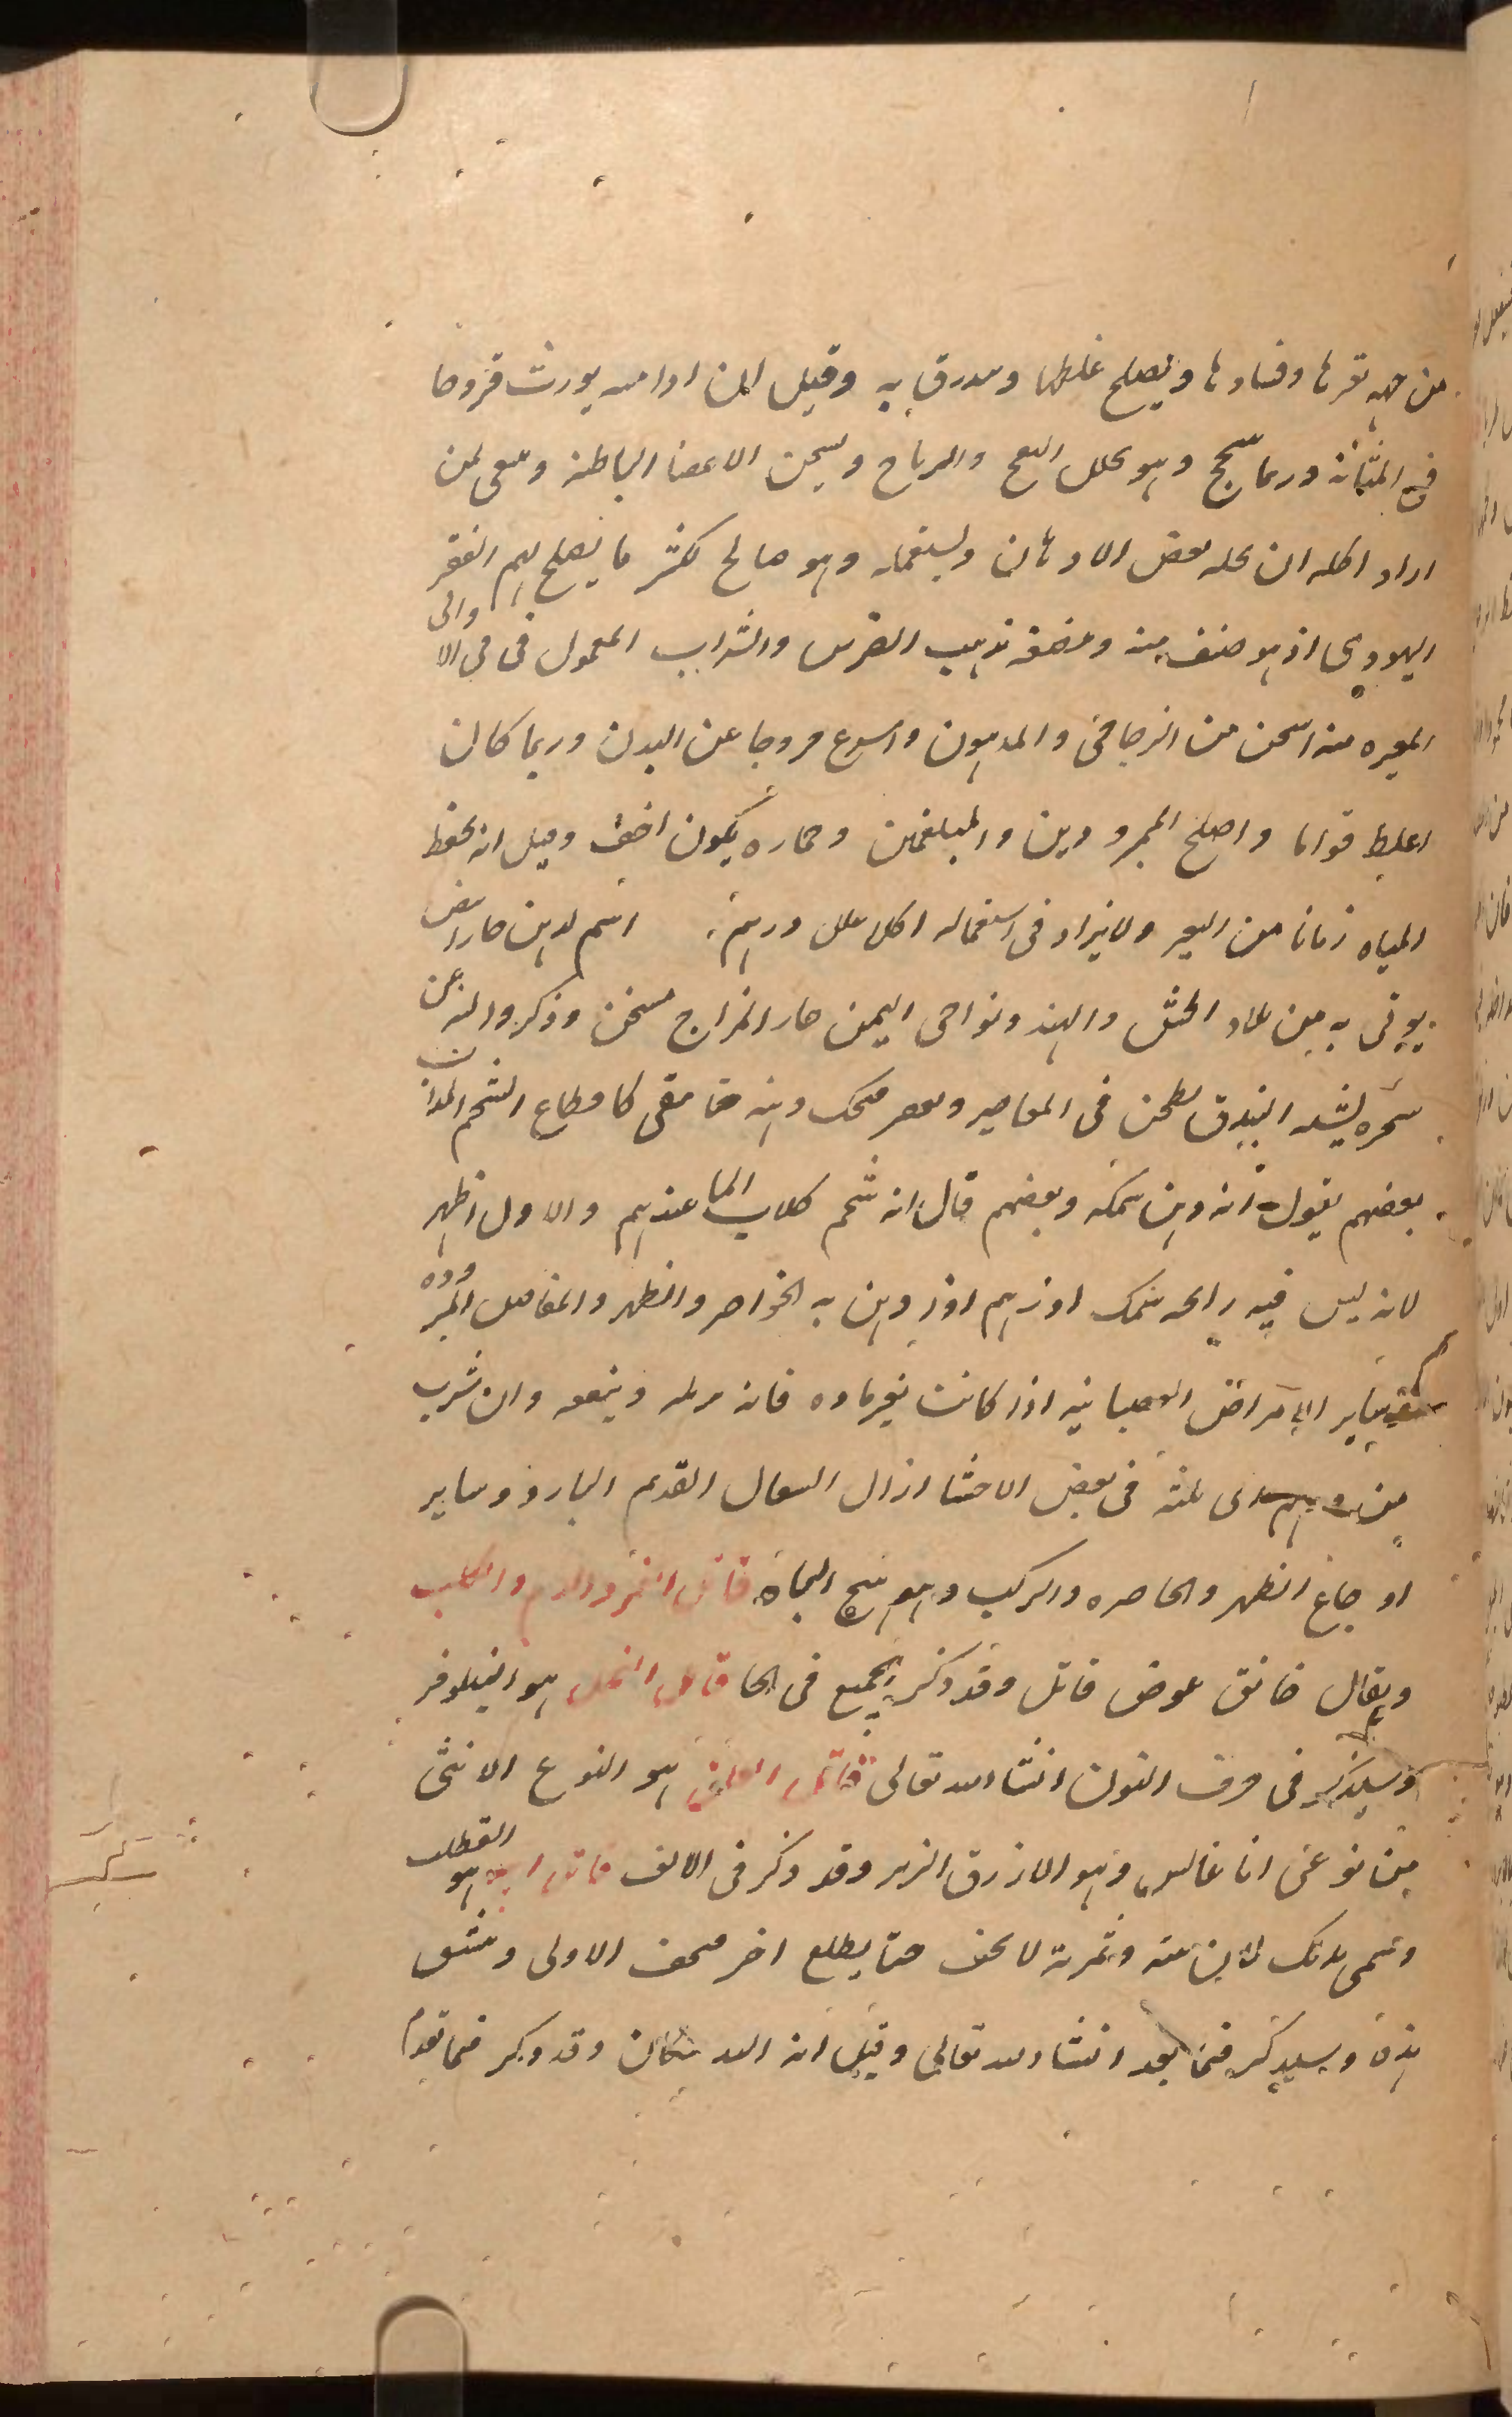 من جهه تقرها وفسادها ويصلح غلظها وقيل ان ادامه يورث قروحا
فى المثانة وربما سحج وهو يحلل النفخ والرياح ويسخن الاعضا الباطنة لمن
اراد اكله ان يحله ببعض الادهان وهو صالح ما يصلح لهم القفر
اليهودى اذ هو صنف منه ومضغه يذهب الضرس والشراب المعمول فى الاوانى
المقيره منه اسخن من الزجاجى والمدهون واسرع خروجا عن البدن وربما كان
اغلظ قواما واصلح للمبرودين والمبلغمين وخماره يكون اخف وقيل انه يحفظ
المياه زمانا من التغير ولا يزاد فى استعماله اكلا على درهم اسم لدهن حار ابيض
يوتى به من بلاد الحبش والهند ونواحى اليمن حار المزاج مسخن وذكروا انه من
شجره يشبه البندق يطحن فى المعاصير ويعصر دهنه كاقطاع الشحم المذاب
بعضهم يقول انه دهن سمكه وبعضهم قال انه شحم كلاب الما عندهم والاول اظهر
لانه ليس فيه رايحه سمك اوزهم اذا دهن به الخواصر والظهر والمفاصل المبروده
وساير الامراض العصبانيه اذا كانت بغير ماده فانه يزيله وينفعه وان شرب
من درهم الى ثلثة فى بعض الاحشا ازال السعال القديم البارد وساير
اوجاع الظهر والخاصره والركب وهو يهيج الباه قاتل النمر والدب والكلب
ويقال خانق عوض قاتل وقد ذكر الجميع فى الخا قاتل النحل هو النيلوفر
وسيذكر فى حرف النون انشا الله تعالى قاتل العلق هو النوع الانثى
من نوعى اناغالس وهو الازرق الزهر وقد ذكر فى الالف قاتل ابيه هو القطلب
وسمى بذلك لان منه وثمرته لا تجف حتى يطلع اخر فتجف الاولى
وسيذكر فيما بعد انشا الله تعالى وقيل انه وقد ذكر فيما تقدم